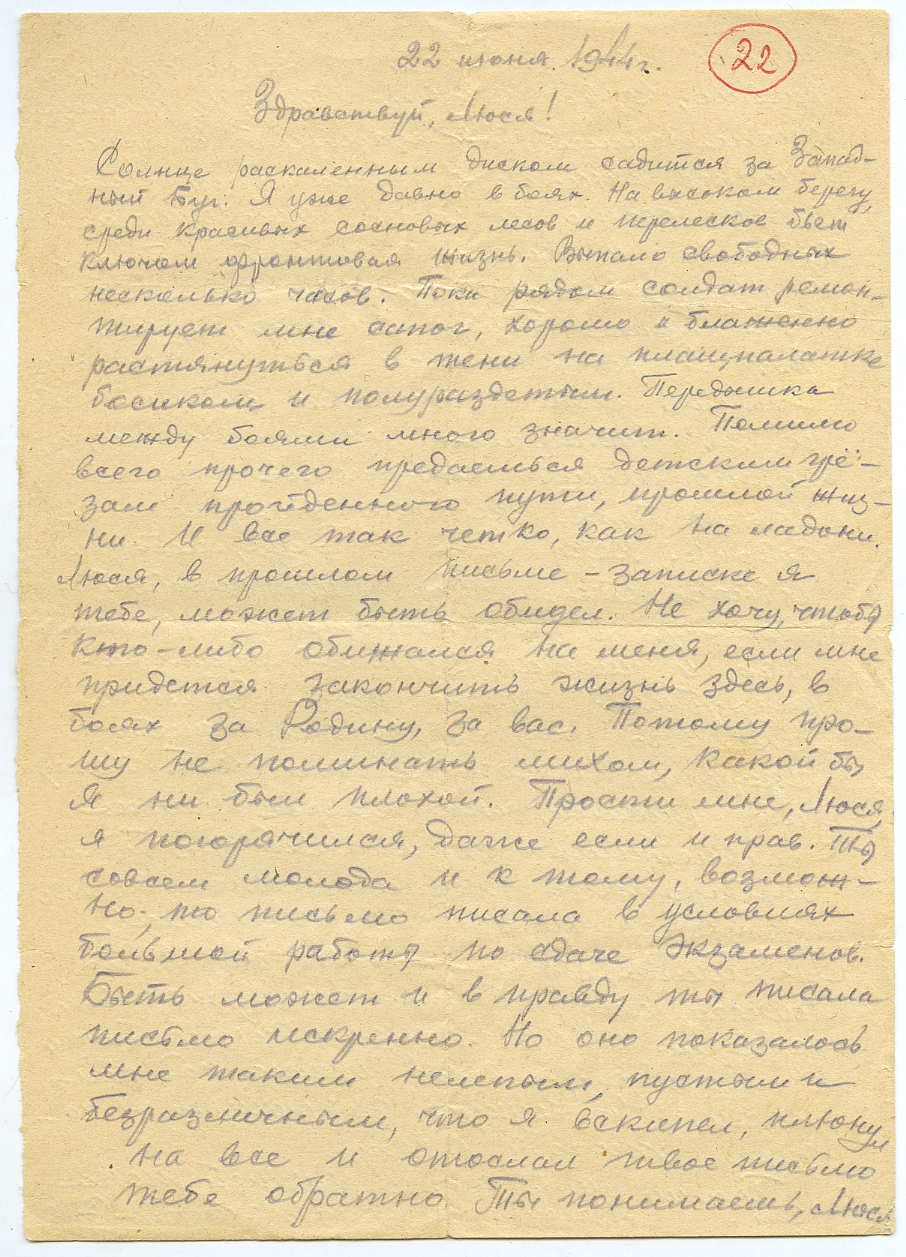 22 июня 1944 г.
22
Здравствуй, Люся!
Солнце раскаленным диском садится за Запад-
ный Буг. Я уже давно в боях. На высоком берегу,
среди красивых сосновых лесов и перелесков бьет
ключом фронтовая жизнь. Выпало свободных
несколько часов. Пока рядом солдат ремон-
тирует мне сапог, хорошо и блаженно
растянуться в тени на плащпалатке
босиком и полураздетым. Передышка
между боями много значит. Помимо
всего прочего предаешься детским грё-
зам пройденного пути, прошлой жиз-
ни. И все так четко, как на ладони.
Люся, в прошлом письме-записке я
тебе, может быть обидел. Не хочу, чтобы
кто-либо обижался на меня, если мне
придется закончить жизнь здесь, в
боях за Родину, за вас. Потому про-
шу не поминать лихом, какой бы
я ни был плохой. Прости мне, Люся,
я погорячился, даже если и прав. Ты
совсем молода и к тому, возмож-
но, то письмо писала в условиях
большой работы по сдаче экзаменов.
Быть может и в правду ты писала
письмо искренно. Но оно показалось
мне таким нелепым, пустым и
безразличным, что я вскипел, плюнул
на все и отослал твое письмо
тебе обратно. Ты понимаешь, Люся